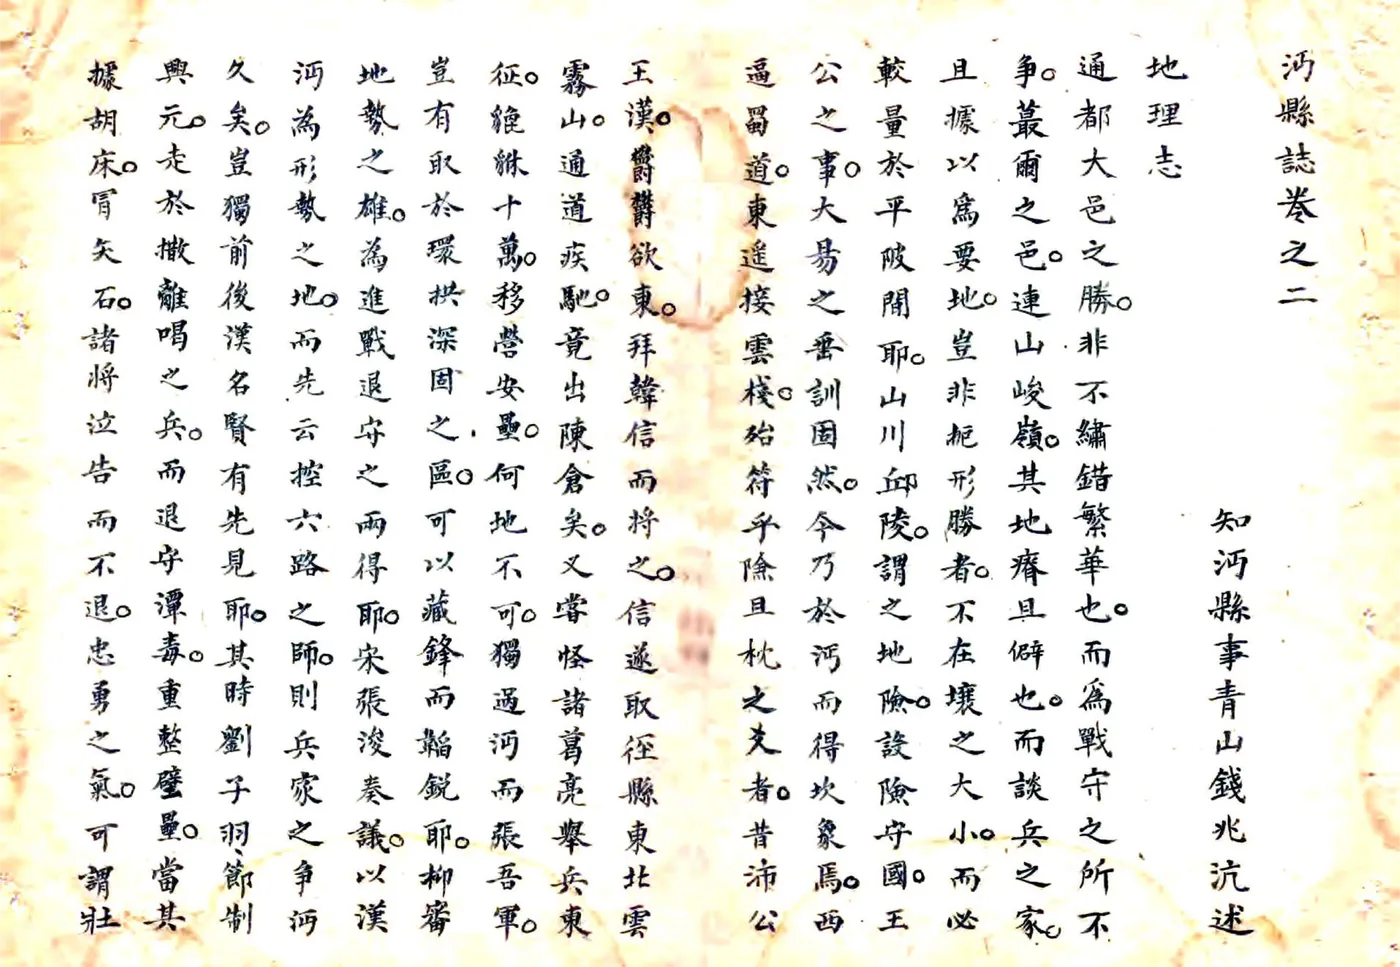 沔縣誌卷之二
知沔縣事青山錢兆沆述
地理志
通都大邑之勝。非不繡錯繁華也。而爲戰守之所不
爭。蕞爾之邑。連山峻嶺。其地瘠且僻也。而談兵之家。
且據以爲要地。豈非扼形勝者。不在壤之大小。而必
較量於平陂間耶。山川邱陵。謂之地險。設險守國。王
公之事。大易之垂訓固然。今乃於沔而得坎象焉。西
逼蜀道。東遥接雲棧。殆符乎險且枕之爻者。昔沛公
王漢。欝欝欲東。拜韓信而將之。信遂取徑縣東北雲
霧山。通道疾馳。竟出陳倉矣。又嘗怪諸葛亮舉兵東
征。貔貅十萬。移營安壘。何地不可。獨過沔而張吾軍。
豈有取於環拱深固之區。可以藏鋒而韜鋭耶。柳審
地勢之雄。為進戰退守之兩得耶。宋張浚奏議。以漢
沔為形勢之地。而先云控六路之師。則兵家之爭沔
久矣。豈獨前後漢名賢有先見耶。其時劉子羽、節制
興元。走於撒離喝之兵。而退守潭毒。重整壁壘。當其
據胡床。冐矢石。諸將泣告而不退。忠勇之氣。可謂壯